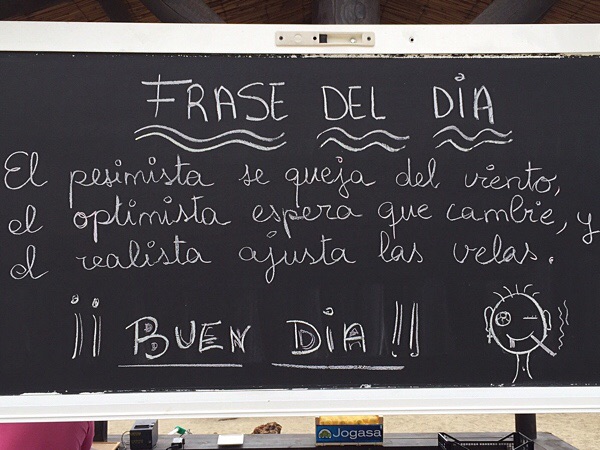 FRASE DEL DÍA
El pesimista se queja del viento,
el optimista espera que cambie, y
el realista ajusta las velas.
¡¡ BUEN DÍA !!
Jogasa